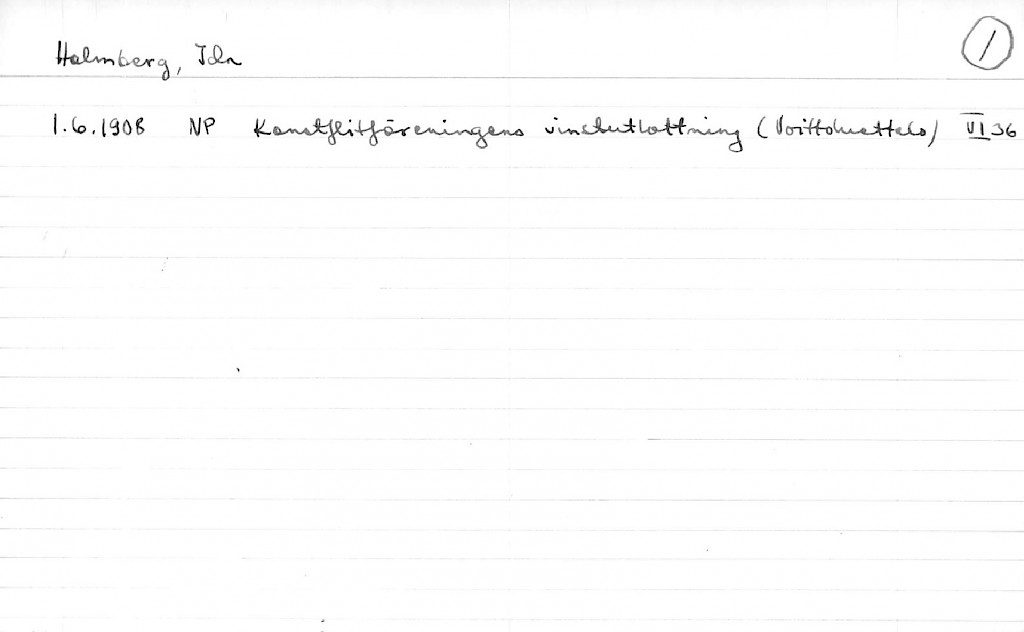 Holmberg, Ida
1
1.6.1908 NP Konstflitföreningens vinstutlottning (Voittoluettelo) VI 36